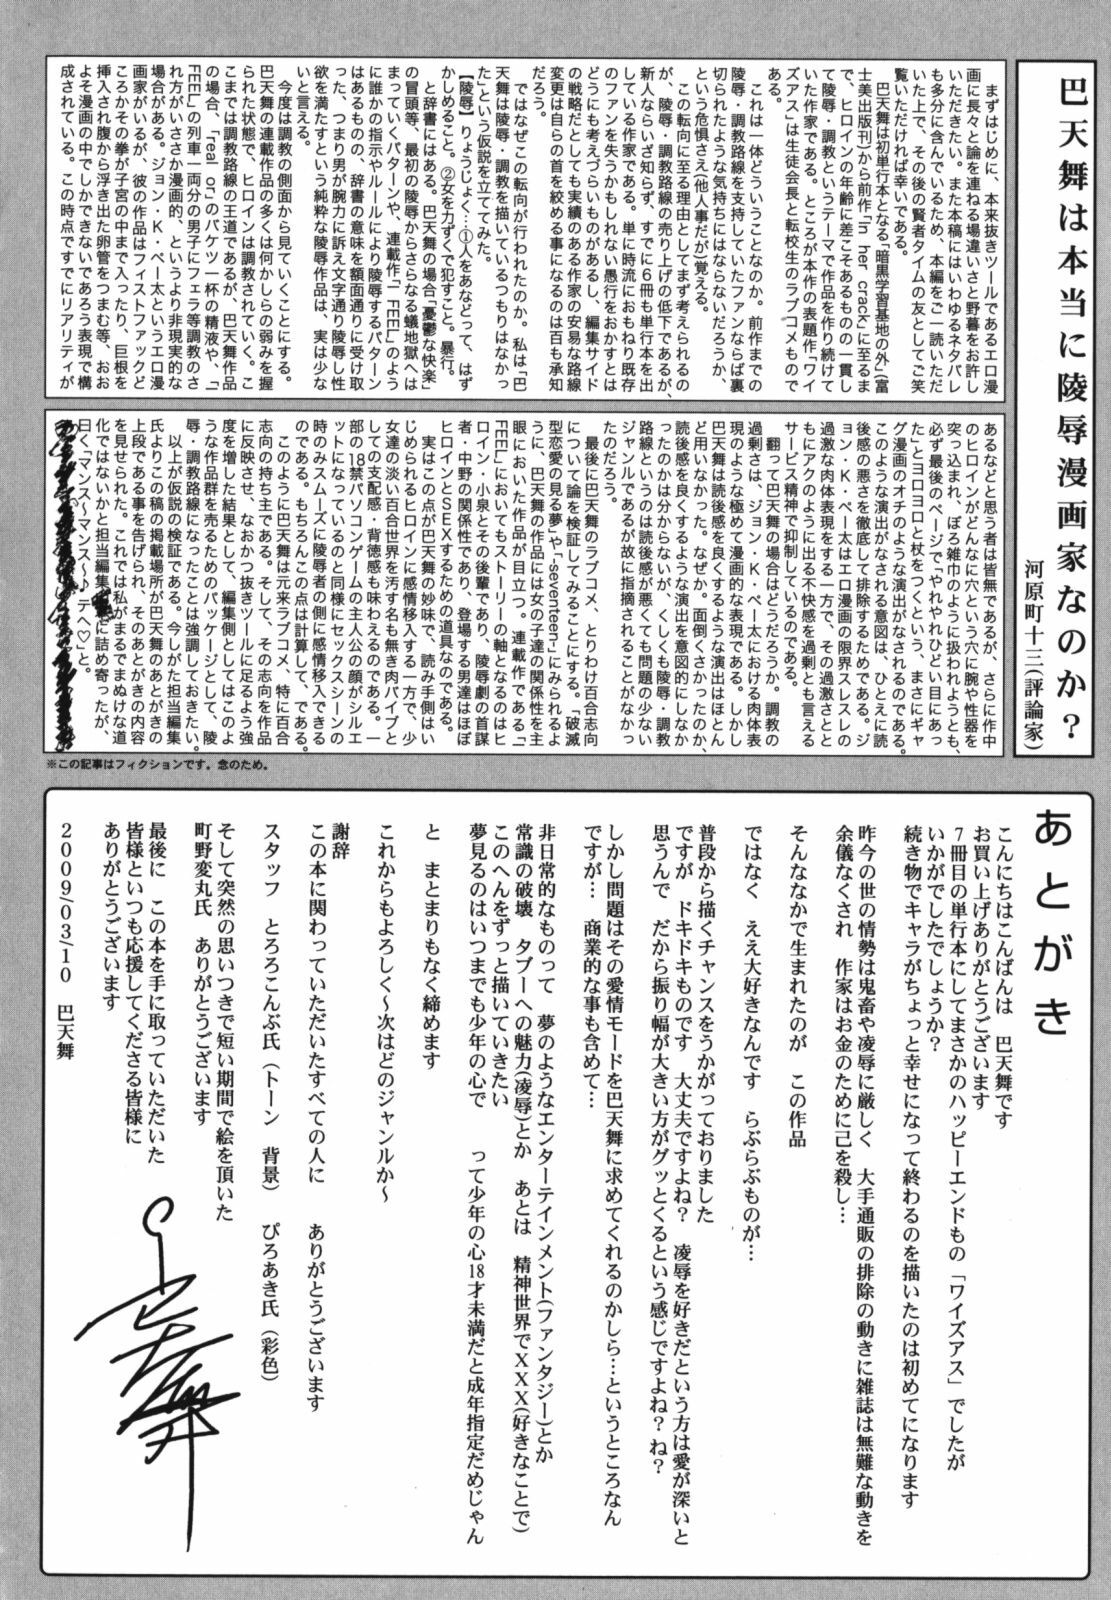 巴天舞は本当に陵辱漫画家なのか？
河原町十三（評論家）
まずはじめに、本来抜きツールであるエロ漫
画に長々と論を連ねる場違いさと野暮をお許し
いただきたい。また本稿にはいわゆるネタバレ
も多分に含んでいるため、本編をご一読いただ
いた上で、その後の賢者タイムの友としてご笑
覧いただければ幸いである。
巴天舞は初単行本となる「暗黒学習基地の外」（富
士美出版刊）から前作「in her crack」に至るま
で、ヒロインの年齢に差こそあるものの一貫し
て陵辱・調教というテーマで作品を作り続けて
いた作家である。ところが本作の表題作「ワイ
ズアス」は生徒会長と転校生のラブコメもので
ある。
これは一体どういうことなのか。前作までの
陵辱・調教路線を支持していたファンならば裏
切られたような気持ちにはならないだろうか、
という危惧さえ（他人事だが）覚える。
この転向に至る理由としてまず考えられるの
が、陵辱・調教路線の売り上げの低下であるが、
新人ならいざ知らず、すでに６冊も単行本を出
している作家である。単に時流におもねり既存
のファンを失うかもしれない愚行をおかすとは
どうにも考えづらいものがあるし、編集サイド
の戦略だとしても実績のある作家の安易な路線
変更は自らの首を絞める事になるのは百も承知
だろう。
ではなぜこの転向が行われたのか。私は「巴
天舞は陵辱・調教を描いているつもりはなかっ
た」という仮説を立ててみた。
【陵辱】りょうじょく…①人をあなどって、はず
かしめること。②女を力ずくで犯すこと。暴行。
と辞書にはある。巴天舞の場合「憂鬱な快楽」
の冒頭等、最初の陵辱からさらなる蟻地獄へは
まっていくパターンや、連載作「I FEEL」のよう
に誰かの指示やルールにより陵辱するパターン
はあるものの、辞書の意味を額面通りに受け取
った、つまり男が腕力に訴え文字通り陵辱し性
欲を満たすという純粋な陵辱作品は、実は少な
いと言える。
今度は調教の側面から見ていくことにする。
巴天舞の連載作品の多くは何かしらの弱みを握
られた状態で、ヒロインは調教されていく。こ
こまでは調教路線の王道であるが、巴天舞作品
の場合、「real or」のバケツ一杯の精液や、「I
FEEL」の列車一両分の男子にフェラ等調教のさ
れ方がいささか漫画的、というより非現実的な
場合がある。ジョン・K・ペー太というエロ漫
画家がいるが、彼の作品はフィストファックど
ころかその拳が子宮の中まで入ったり、巨根を
挿入され腹から浮き出た卵管をつまむ等、おお
よそ漫画の中でしかできないであろう表現で構
成されている。この時点ですでにリアリティが
あるなどと思う者は皆無であるが、さらに作中
のヒロインがどんなに穴という穴に腕や性器を
突っ込まれ、ぼろ雑巾のように扱われようとも、
必ず最後のページで「やれやれひどい目にあっ
た」とヨロヨロと杖をつくという、まさにギャ
グ漫画のオチのような演出がなされるのである。
このような演出がなされる意図は、ひとえに読
後感の悪さを徹底して排除するためである。ジ
ョン・K・ペー太はエロ漫画の限界スレスレの
過激な肉体表現をする一方で、その過激さとと
もにアクのように出る不快感を過剰とも言える
サービス精神で抑制しているのである。
翻って巴天舞の場合はどうだろうか。調教の
過剰さは、ジョン・K・ペー太における肉体表
現のような極めて漫画的な表現である。しかし
巴天舞は読後感を良くするような演出はほとん
ど用いなかった。なぜか。面倒くさかったのか、
読後感を良くするような演出を意図的にしなか
ったのかは分からないが、くしくも陵辱・調教
路線というのは読後感が悪くても問題の少ない
ジャンルであるが故に指摘されることがなかっ
たのだろう。
最後に巴天舞のラブコメ、とりわけ百合志向
について論を検証してみることにする。「破滅
型恋愛の見る夢」や「-seventeen-」にみられるよ
うに、巴天舞の作品には女の子達の関係性を主
眼においた作品が目立つ。連載作である「I
FEEL」においてもストーリーの軸となるのはヒ
ロイン・小泉とその後輩であり、陵辱劇の首謀
者・中野の関係性であり、登場する男達はほぼ
ヒロインとSEXするための道具なのである。
実はこの点が巴天舞の妙味で、読み手側はい
じめられるヒロインに感情移入する一方で、少
女達の淡い百合世界を汚す名も無き肉バイブと
しての支配感・背徳感も味わえるのである。一
部の18禁パソコンゲームの主人公の顔がシルエ
ットになっているのと同様にセックスシーンの
時のみスムーズに陵辱者の側に感情移入できる
のである。もちろんこの点は計算して、である。
このように巴天舞は元来ラブコメ、特に百合
志向の持ち主である。そして、その志向を作品
に反映させ、なおかつ抜きツールに足るよう強
度を増した結果として、編集側としてはこのよ
うな作品群を売るためのパッケージとして、陵
辱・調教路線になったことは強調しておきたい。
以上が仮説の検証である。今しがた担当編集
氏よりこの稿の掲載場所が巴天舞のあとがきの
上段である事を告げられ、そのあとがきの内容
を見せられた。これでは私がまるでまぬけな道
化ではないかと担当編集に詰め寄ったが、
曰く「マンス～マンス～♪ テヘ♡」と。
※この記事はフィクションです。念のため。
あとがき
こんにちはこんばんは　巴天舞です
お買い上げありがとうございます
７冊目の単行本にしてまさかのハッピーエンドもの「ワイズアス」でしたが
いかがでしたでしょうか？
続き物でキャラがちょっと幸せになって終わるのを描いたのは初めてになります
昨今の世の情勢は鬼畜や凌辱に厳しく　大手通販の排除の動きに雑誌は無難な動きを
余儀なくされ　作家はお金のために己を殺し…
そんななかで生まれたのが　この作品
ではなく　ええ大好きなんです　らぶらぶものが…
普段から描くチャンスをうかがっておりました
ですが　ドキドキものです　大丈夫ですよね？　凌辱を好きだという方は愛が深いと
思うんで　だから振り幅が大きい方がグッとくるという感じですよね？ね？
しかし問題はその愛情モードを巴天舞に求めてくれるのかしら…というところなん
ですが…　商業的な事も含めて…
非日常的なものって　夢のようなエンターテインメント（ファンタジー）とか
常識の破壊　タブーへの魅力（凌辱）とか　あとは　精神世界でＸＸＸ（好きなことで）
このへんをずっと描いていきたい
夢見るのはいつまでも少年の心で　って少年の心18才未満だと成年指定だめじゃん
と　まとまりもなく締めます
これからもよろしく～次はどのジャンルか～
謝辞
この本に関わっていただいたすべての人に　ありがとうございます
スタッフ　とろろこんぶ氏（トーン　背景）　ぴろあき氏（彩色）
そして突然の思いつきで短い期間で絵を頂いた
町野変丸氏　ありがとうございます
最後に　この本を手に取っていただいた
皆様といつも応援してくださる皆様に
ありがとうございます
2009/03/10　巴天舞
巴天舞